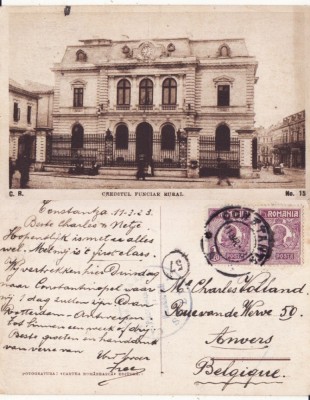 C. R.
CREDITUL FUNCIAR RURAL
No. 15
Constantza 11-3-23.
Beste Charles & Netje.
Hopenslijk is met er alles
wel. Met mij is 't pro class.
Wij vertrekken hier Dinsdag
naar Constantinopel waar
wij 1 dag zullen zijn Dan
Rotterdam - Antwerpen
tot binnen een week of drij.
Beste groeten en handdruk
van verre van
ROMANIA
57
Mr Charles Volland
Rue van de Werve 50.
Anvers
Belgique.